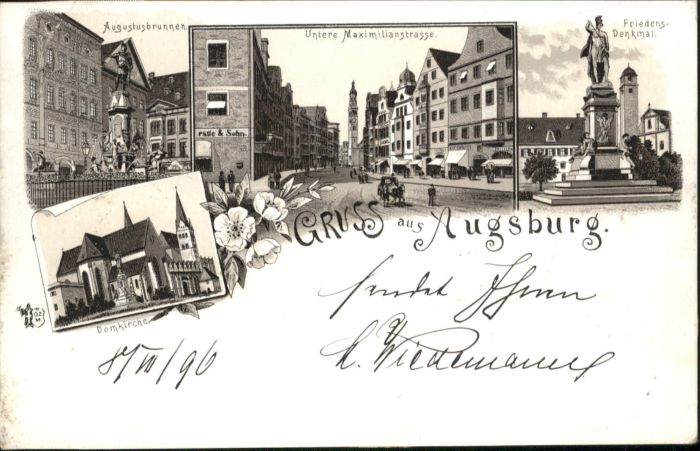 Augustusbrunnen.
Untere Maximilianstrasse.
Friedens-
Denkmal.
& Sohn.
GRUSS aus Augsburg.
Domkirche.
sendet Ihnen
Wiedemann
/96